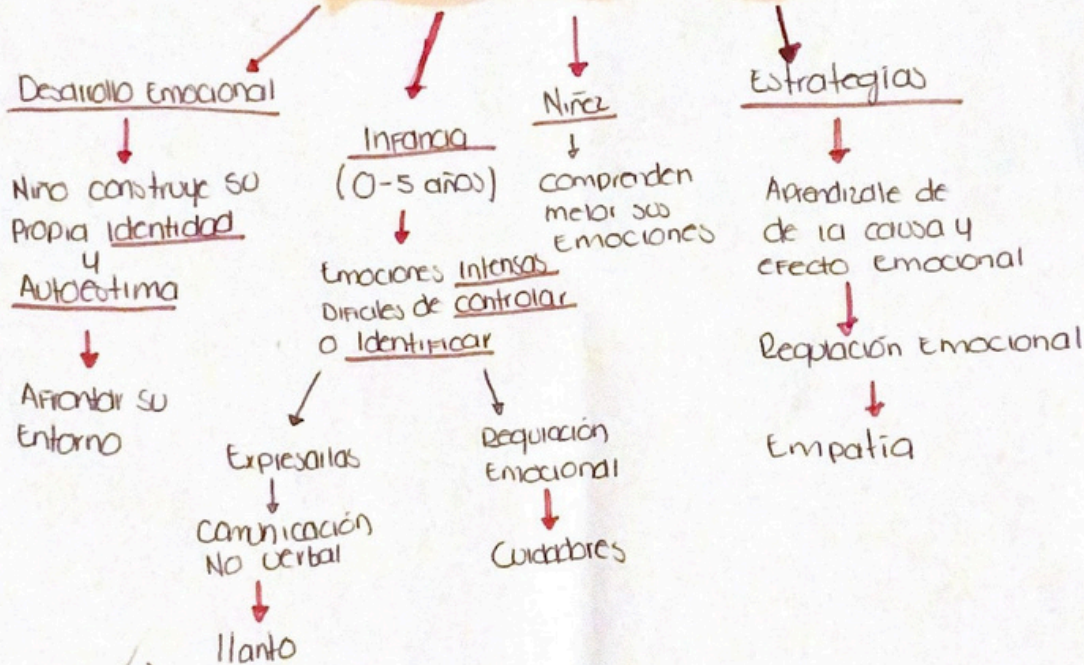 Desarrollo Emocional
Niño construye su
Propia Identidad
y
Autoestima
Afrontar su
Entorno
Infancia
(0-5 años)
Emociones Intensas
Dificiles de controlar
o Identificar
Expresarlas
Comunicación
No verbal
llanto
Regulación
Emocional
Cuidadores
Niñez
comprenden
mejor sus
Emociones
Estrategias
Aprendizaje de
de la causa y
efecto emocional
Regulación Emocional
Empatía